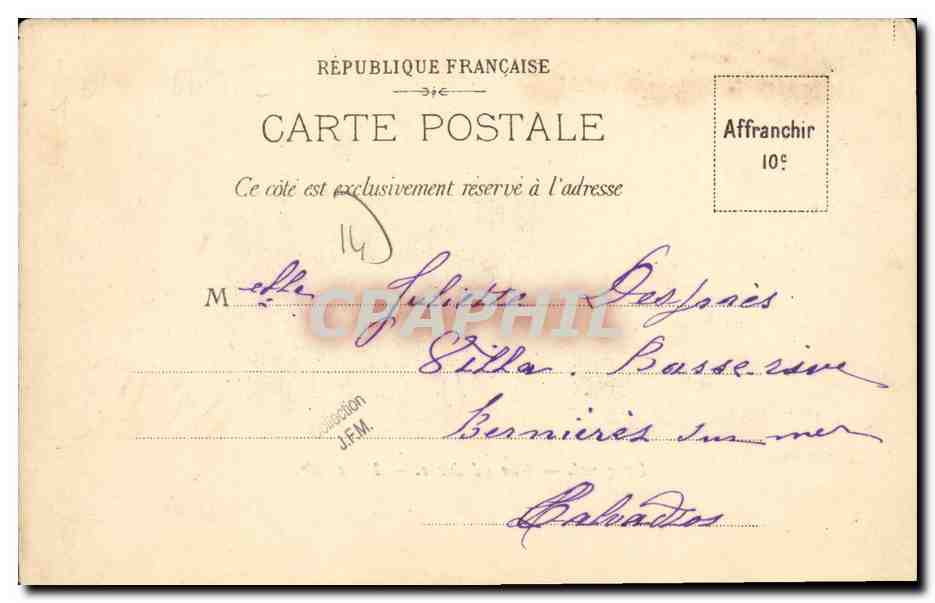 RÉPUBLIQUE FRANÇAISE
CARTE POSTALE
Ce côté est exclusivement réservé à l'adresse
Affranchir
10c
14
Melle Juliette Desprès
CPAPHIL
Villa Basserive
Collection
J.F.M.
Bernières sur mer
Calvados